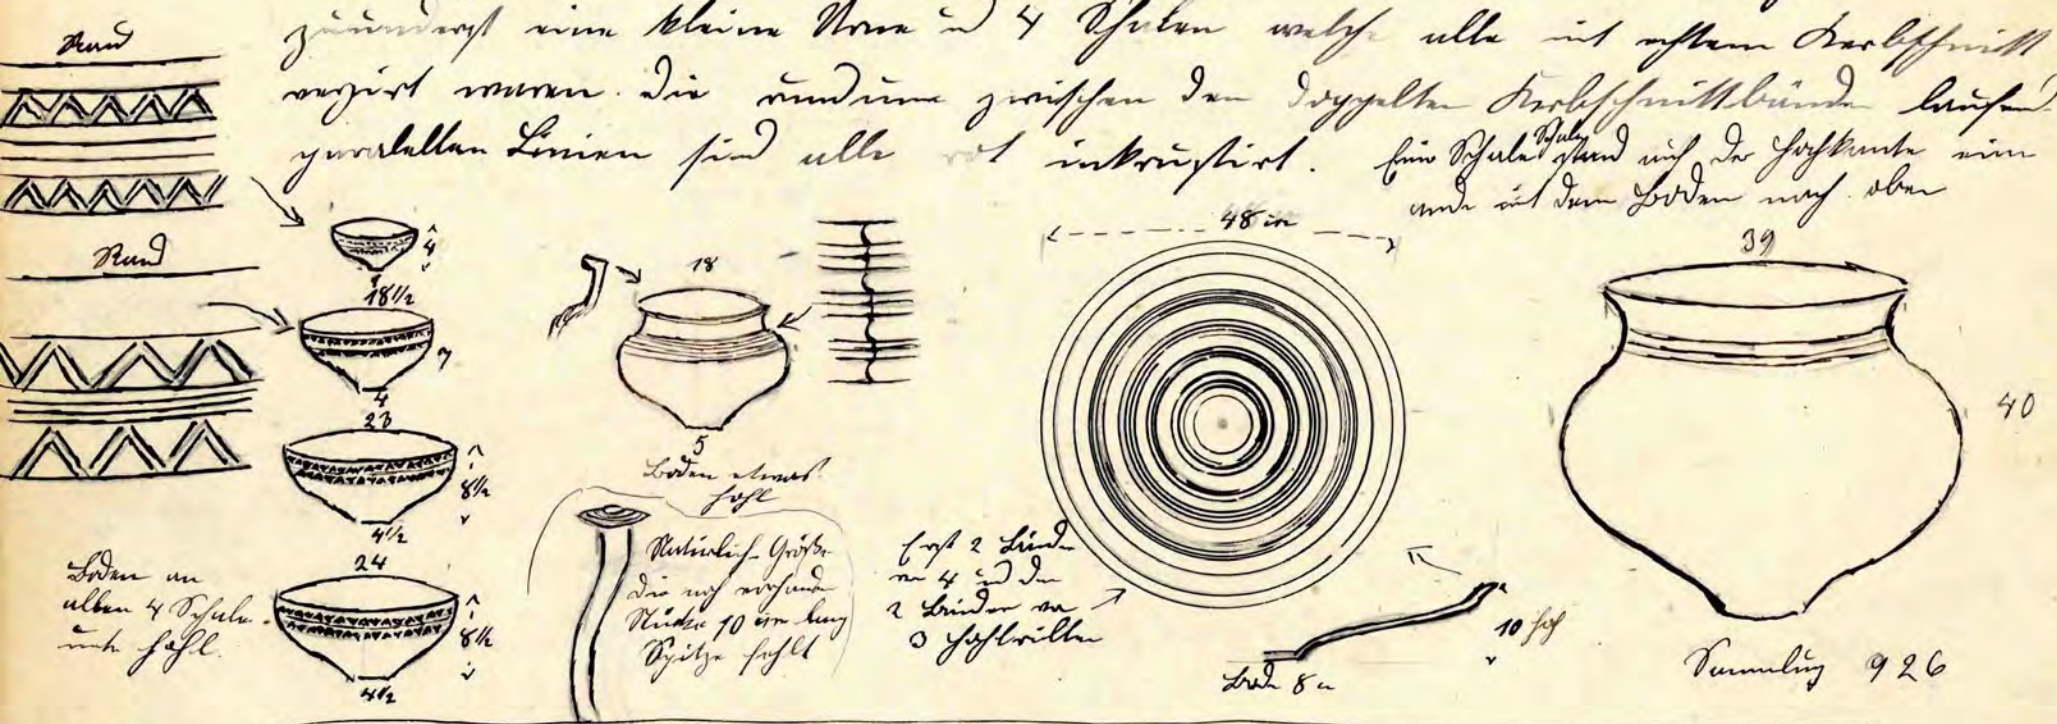 zuunderst eine kleine Urne u 4 Schalen welche alle mit echtem Kerbschnitt
verzirt waren. Die rundum zwischen den doppelten Kerbschnittbände laufend
paralellen Linien sind alle rot inkrustirt.
Eine Schale stand auf der Hochkante eine
ande mit dem Boden nach oben
Rand
Rand
4
18½
7
4
23
8½
4½
24
8½
4½
Boden an
allen 4 Schale
unte hohl.
18
5
Boden etwas
hohl
Natürlich Größe
die noch vorhande
Stücke 10 cm lang
Spitze fehlt
48 cm
Erst 2 Bände
von 4 und den
2 Bänder von
3 Hohlrillen
10 hoh
Bode 8 c
39
40
Sammlug 926